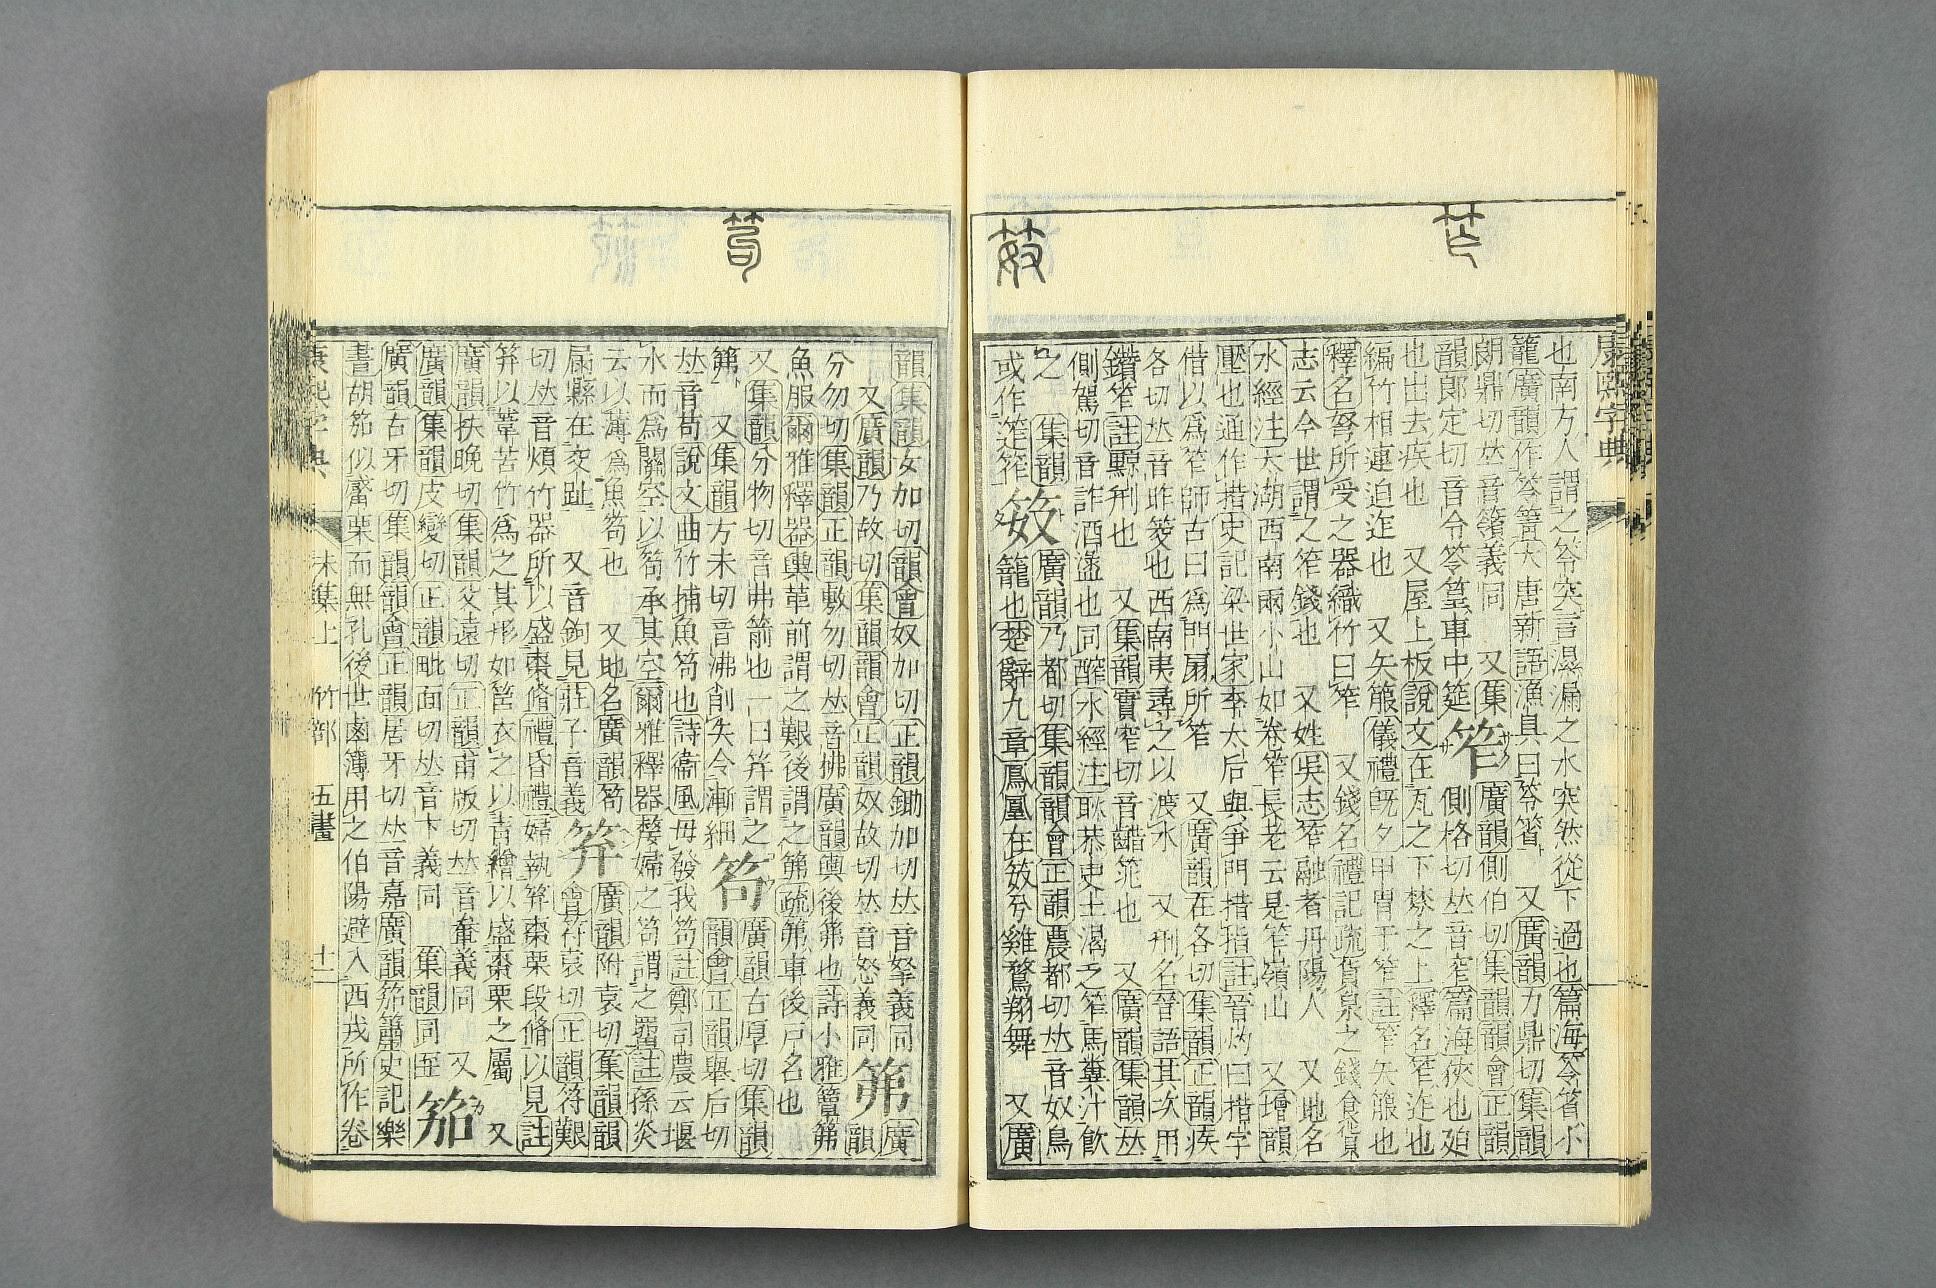 康熙字典
笮
笯
也南方人謂之笭突言濕漏之水突然從下過也篇海笭箵小
籠廣韻作笭篝大唐新語漁具曰笭箵 又廣韻力鼎切集韻
朗鼎切𠀤音 義同 又集
韻郎定切音令笭篁車中筵
笮 廣韻側伯切集韻韻會正韻
側格切𠀤音窄篇海狹也廹
也出去疾也 又屋上板說文在瓦之下棼之上釋名笮迮也
編竹相連迫迮也 又矢箙儀禮旣夕甲冑干笮註笮矢箙也
釋名弩所受之器織竹曰笮 又錢名禮記疏貨泉之錢食貨
志云今世謂之笮錢也 又姓吳志笮融者丹陽人 又地名
水經注太湖西南兩小山如卷笮長老云是笮嶺山 又增韻
壓也通作措史記梁世家李太后與爭門措指註晉灼曰措字
借以爲笮師古曰爲門扇所笮 又廣韻在各切集韻正韻疾
各切𠀤音昨筊也西南夷尋之以渡水 又刑名晉語其次用
鑽笮註黥刑也 又集韻實窄切音齰笵也 又廣韻集韻𠀤
側駕切音詐酒盪也同醡水經注耿恭吏士渴乏笮馬糞汁飮
之 集韻
或作筰
笯 廣韻乃都切集韻韻會正韻農都切𠀤音奴鳥
籠也楚辭九章鳳凰在笯兮雞鶩翔舞 又廣
笱
韻集韻女加切韻會奴加切正韻鋤加切𠀤音拏義同
又廣韻乃故切集韻韻會正韻奴故切𠀤音怒義同
笰 廣
韻
分勿切集韻正韻敷勿切𠀤音拂廣韻輿後笰也詩小雅簟笰
魚服爾雅釋器輿革前謂之艱後謂之笰疏笰車後戶名也
又集韻分物切音弗箭也一曰笲謂之
笰 又集韻方未切音沸削矢令漸細
笱 廣韻古厚切集韻
韻會正韻舉后切
𠀤音苟說文曲竹捕魚笱也詩衞風毋發我笱註鄭司農云堰
水而爲關空以笱承其空爾雅釋器嫠婦之笱謂之罶註孫炎
云以薄爲魚笱也 又地名廣韻笱
扇縣在交趾 又音鉤見莊子音義
笲 廣韻附袁切集韻
韻會符袁切正韻符艱
切𠀤音煩竹器所以盛棗脩禮昏禮婦執笲棗栗段脩以見註
笲以葦苦竹爲之其形如筥衣之以靑繒以盛棗栗之屬 又
廣韻扶晚切集韻父遠切正韻甫版切𠀤音 義同 又
廣韻集韻皮變切正韻毗面切𠀤音卞義同 集韻同
笳
廣韻古牙切集韻韻會正韻居牙切𠀤音嘉廣韻笳簫史記樂
書胡笳似觱栗而無孔後世鹵簿用之伯陽避入西戎所作卷
康熙字典 未集上 竹部 五畫 十一